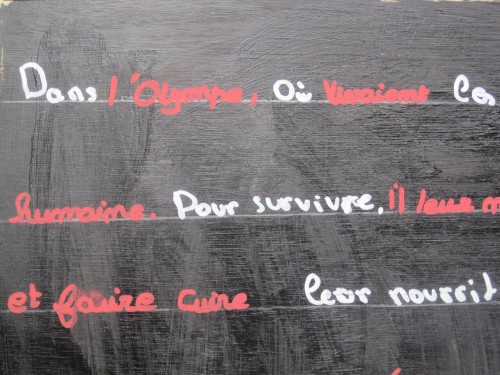 Dans l'Olympe, où vivaient les
humaine. Pour survivre, il leur
et faire cuire leor nourrit